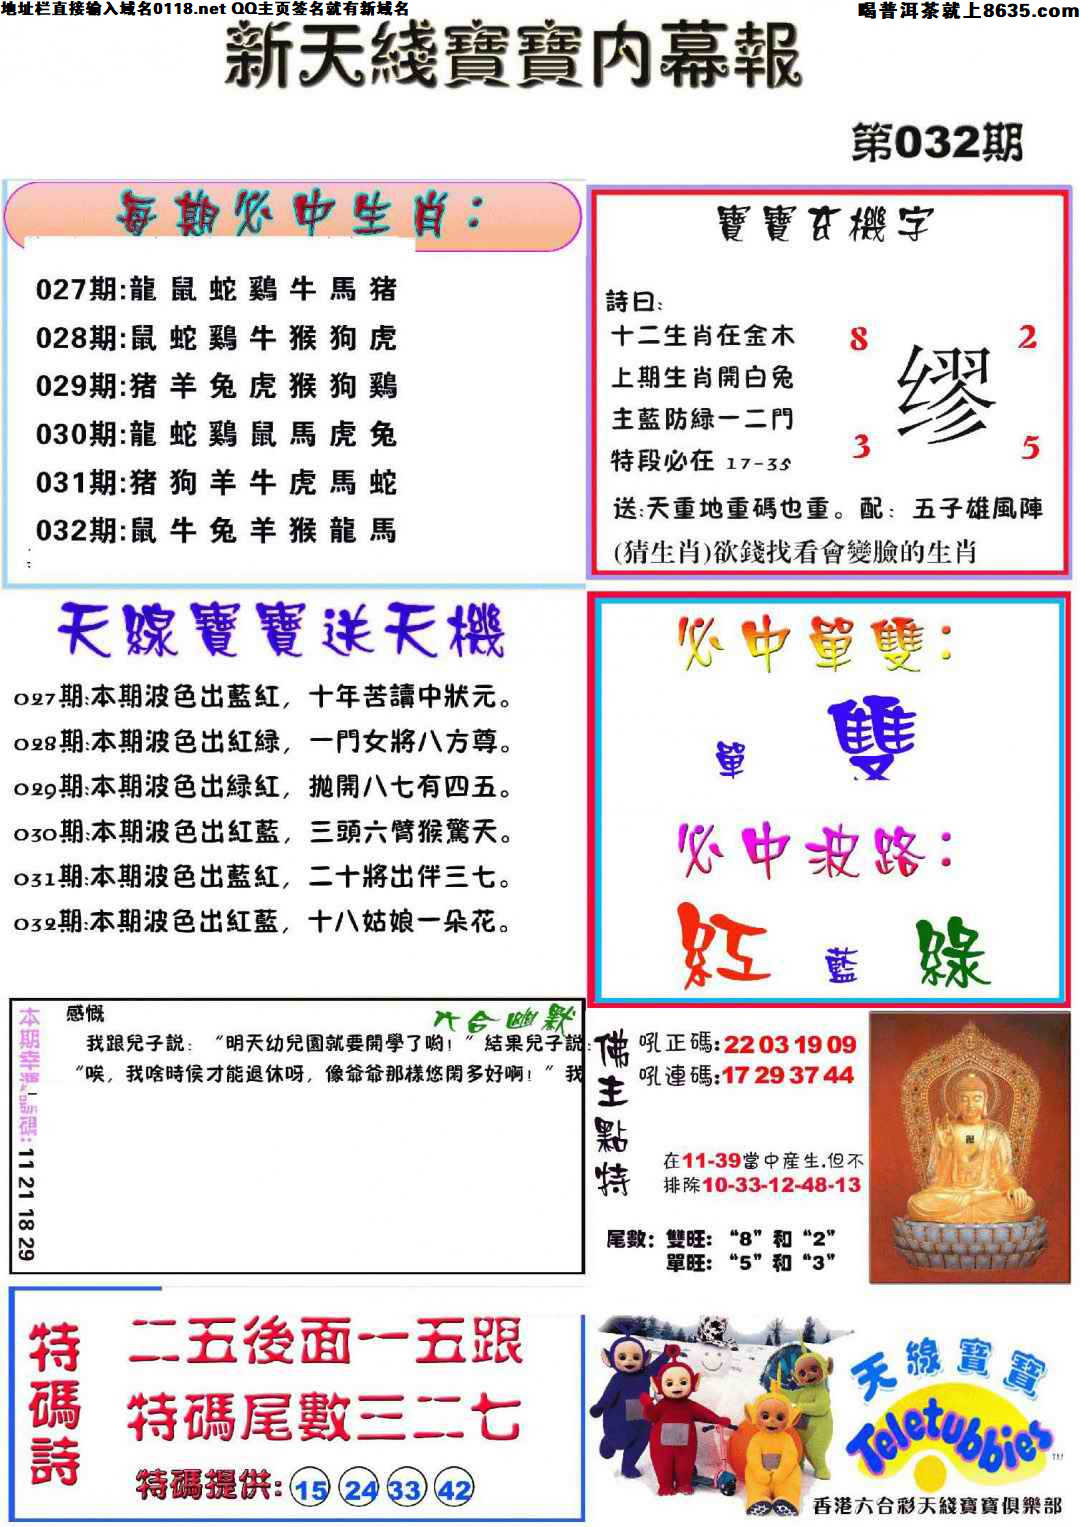 地址栏直接输入域名0118.net QQ主页签名就有新域名
喝普洱茶就上8635.com
新天綫寶寶内幕報
第032期
每期必中生肖：
027期:龍 鼠 蛇 鷄 牛 馬 猪
028期:鼠 蛇 鷄 牛 猴 狗 虎
029期:猪 羊 兔 虎 猴 狗 鷄
030期:龍 蛇 鷄 鼠 馬 虎 兔
031期:猪 狗 羊 牛 虎 馬 蛇
032期:鼠 牛 兔 羊 猴 龍 馬
寶寶玄機字
詩曰:
十二生肖在金木
上期生肖開白兔
主藍防緑一二門
特段必在 17-35
8 2
缪
3 5
送:天重地重碼也重。配：五子雄風陣
(猜生肖)欲錢找看會變臉的生肖
天線寶寶送天機
027期:本期波色出藍紅，十年苦讀中狀元。
028期:本期波色出紅緑，一門女將八方尊。
029期:本期波色出緑紅，抛開八七有四五。
030期:本期波色出紅藍，三頭六臂猴驚天。
031期:本期波色出藍紅，二十將出伴三七。
032期:本期波色出紅藍，十八姑娘一朵花。
必中單雙：
單 雙
必中波路：
紅 藍 綠
本期幸運 號碼: 11 21 18 29
六合幽默
感慨
我跟兒子説：“明天幼兒園就要開學了喲！”結果兒子説:
“唉，我啥時侯才能退休呀，像爺爺那樣悠閑多好啊！”我
佛主點特
吼正碼:22 03 19 09
吼連碼:17 29 37 44
在11-39當中産生.但不
排除10-33-12-48-13
尾數：雙旺：“8”和“2”
單旺：“5”和“3”
特碼詩
二五後面一五跟
特碼尾數三二七
特碼提供: 15 24 33 42
天線寶寶
Teletubbies
TM
香港六合彩天綫寶寶俱樂部